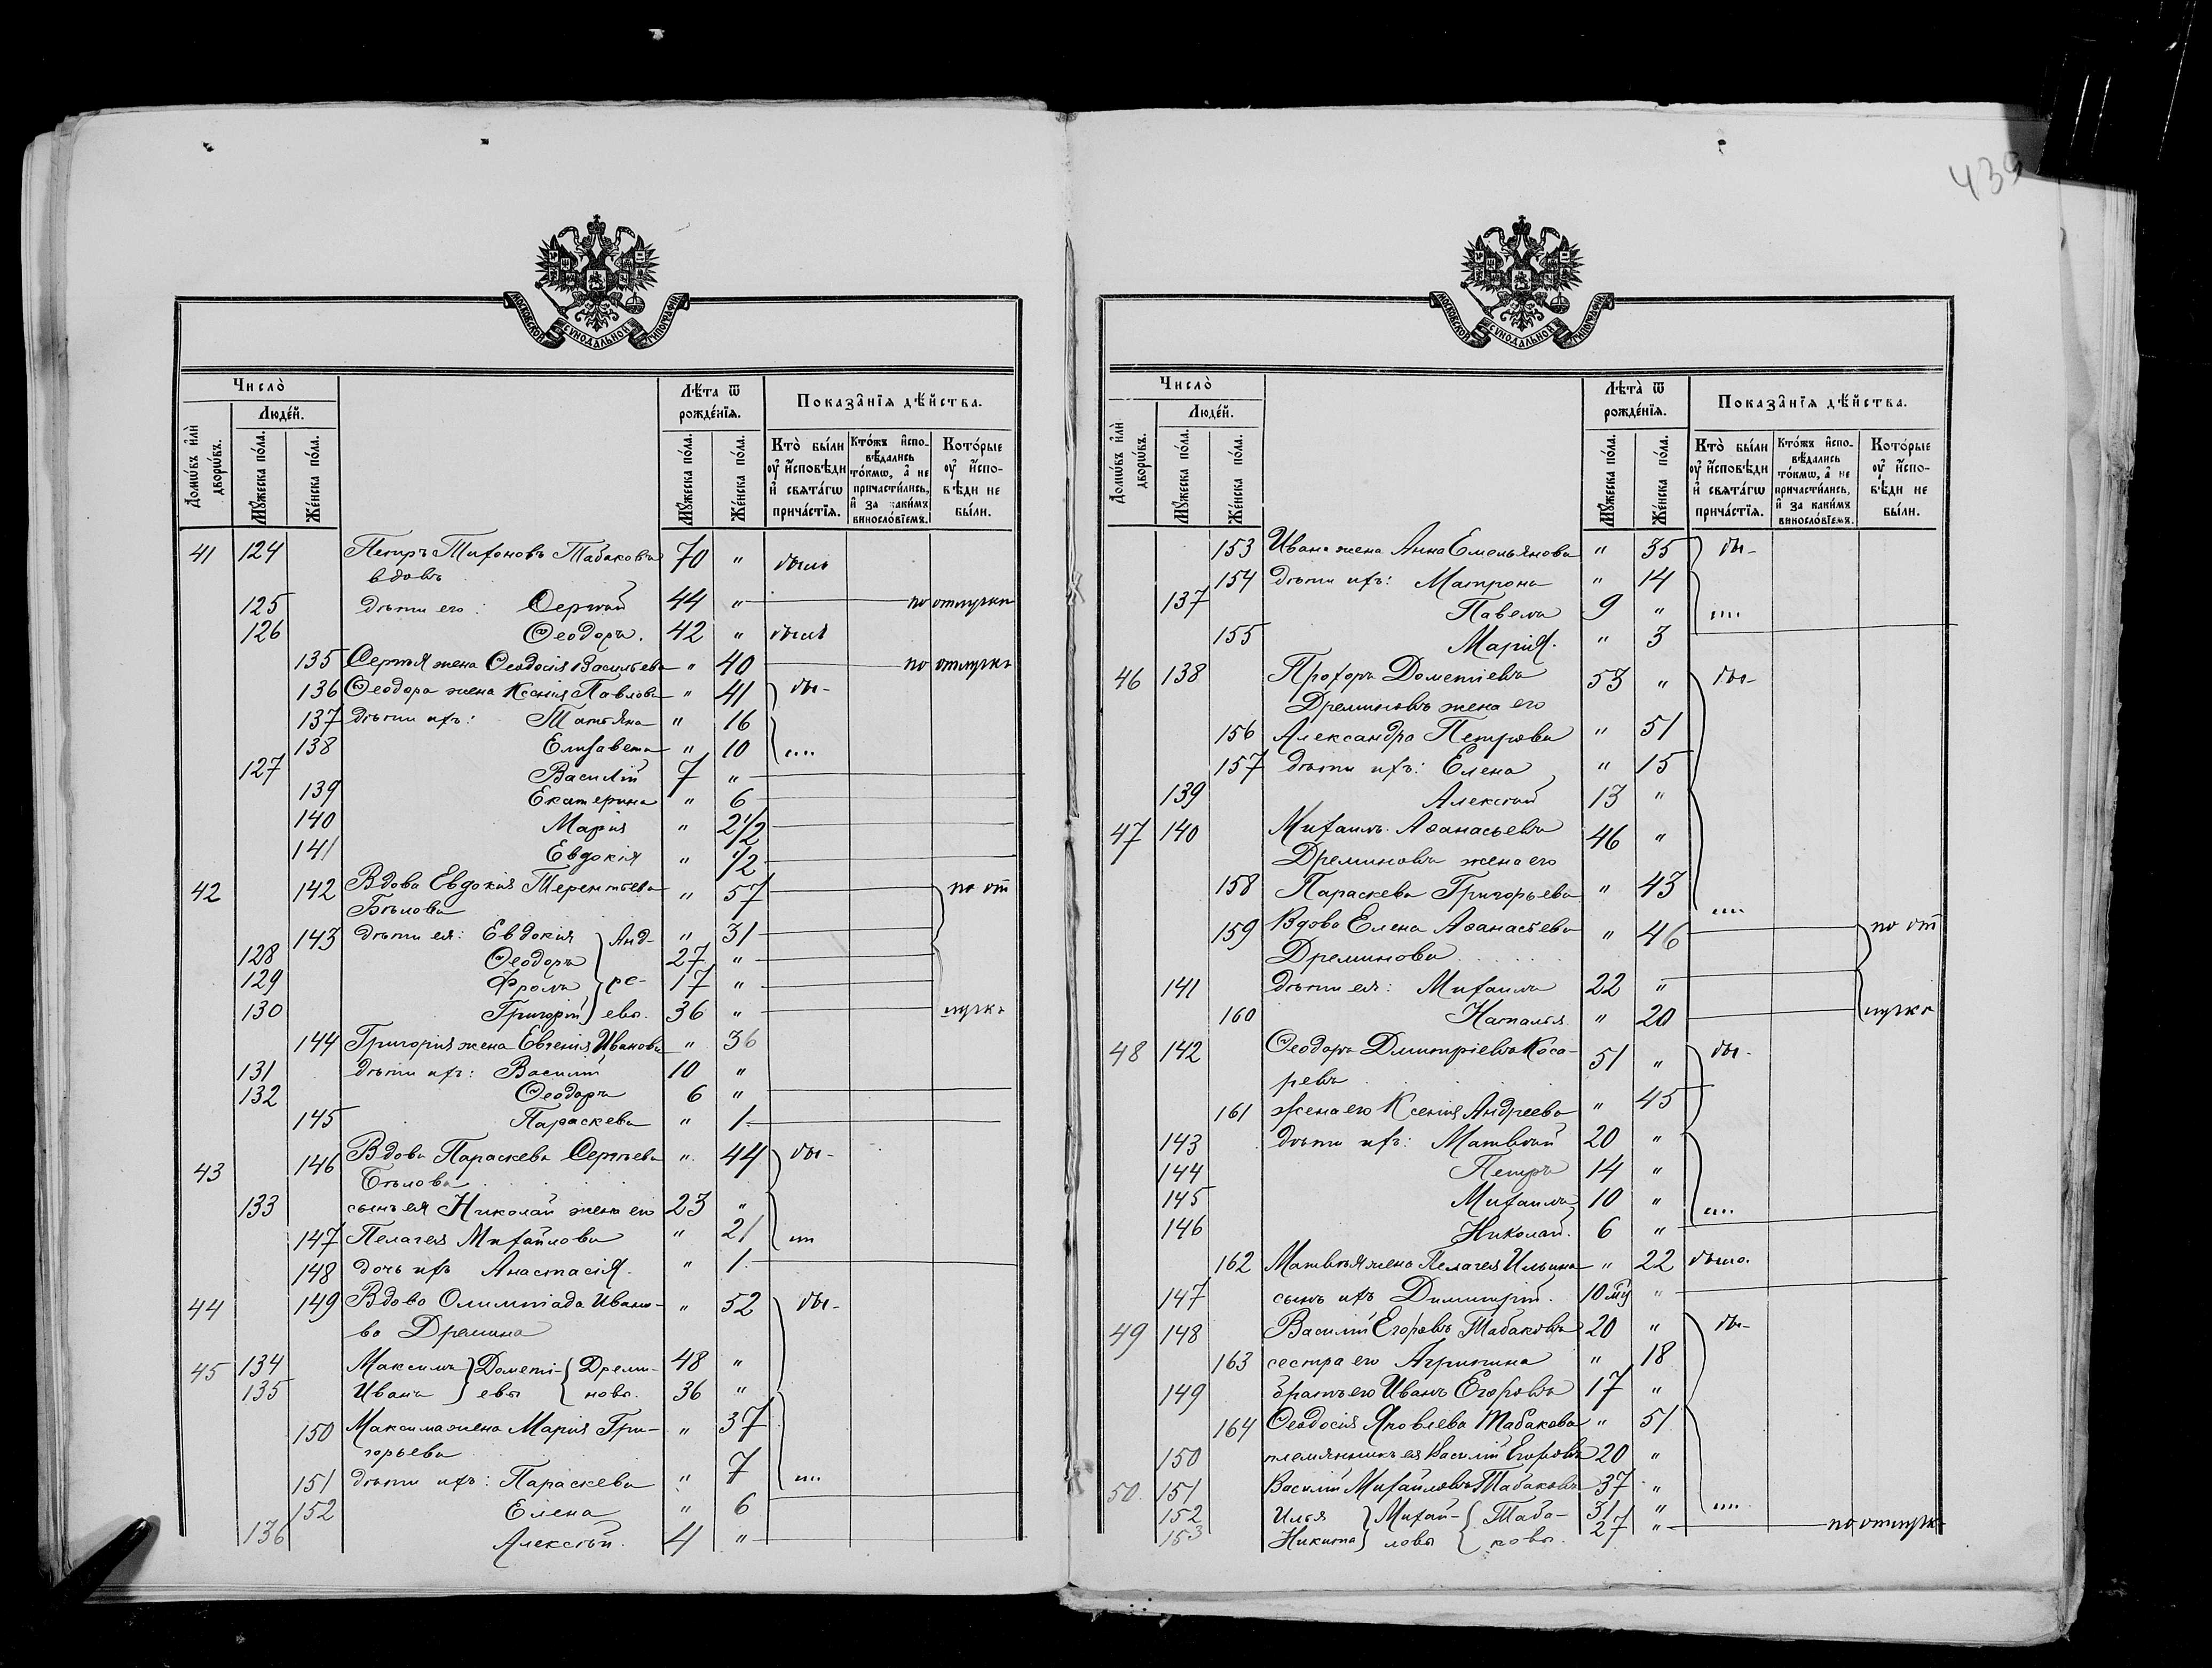 439
МОСКОВСКОЙ СѴНОДАЛЬНОЙ ТИПОГРАФІИ
Число̀
Люде́й.
Лѣ́та ѿ рожде́нїѧ.
Показа̂нїѧ дѣ́йства.
Домѡ́въ и҆лѝ дворѡ́въ.
Мꙋ́жеска по́ла.
Же́нска по́ла.
Мꙋ́жеска по́ла.
Же́нска по́ла.
Кто̀ бы́ли ᲂу҆ и҆сповѣ́ди и҆ свѧта́гѡ прича́стїѧ.
Кто́жъ и҆сповѣ́дались то́кмѡ, а҆ не причасти́лись, и҆ за каки́мъ винослⷪ́вїемъ.
Кото́рые ᲂу҆ и҆сповѣ́ди не бы́ли.
41 124 Петръ Тихоновъ Табаковъ 70 " былъ
вдовъ
125 дѣти его: Сергѣй 44 " по отлучкѣ
126 Ѳеодоръ. 42 " былъ
135 Сергѣя жена Ѳеодосія Васильева " 40 по отлучкѣ
136 Ѳеодора жена Ксенія Павлова " 41 бы-
137 дѣти ихъ: Татьяна " 16
138 Елизавета " 10 ли
127 Василій 7 "
139 Екатерина " 6
140 Марія " 2 1/2
141 Евдокія " 1/2
42 142 Вдова Евдокія Терентьева " 57 по от
Бѣлова
143 дѣти ея: Евдокія Анд- " 31
128 Ѳеодоръ 27 "
129 Фролъ ре- 17 "
130 Григорій евы. 36 " лучкѣ
144 Григорія жена Евгенія Иванова " 36
131 дѣти ихъ: Василій 10 "
132 Ѳеодоръ 6 "
145 Параскева " 1
43 146 Вдова Параскева Сергѣева " 44 бы-
Бѣлова
133 сынъ ея Николай жена его 23 "
147 Пелагея Михайлова " 21 ли
148 дочь ихъ Анастасія " 1
44 149 Вдова Олимпіада Ивано- " 52 бы-
ва Дремина
45 134 Максимъ Дометі- Дреми- 48 "
135 Иванъ евы новы. 36 "
150 Максима жена Марія Гри- " 37
горьева
151 дѣти ихъ: Параскева " 7 ли
152 Елена " 6
136 Алексѣй. 4 "
МОСКОВСКОЙ СѴНОДАЛЬНОЙ ТИПОГРАФІИ
Число̀
Люде́й.
Лѣта̀ ѿ рожде́нїѧ.
Показа̂нїѧ дѣ́йства.
Домѡ́въ и҆лѝ дворѡ́въ.
Мꙋ́жеска по́ла.
Же́нска по́ла.
Мꙋ́жеска по́ла.
Же́нска по́ла.
Кто̀ бы́ли ᲂу҆ и҆сповѣ́ди и҆ свѧта́гѡ прича́стїѧ.
Кто́жъ и҆сповѣ́дались то́кмѡ, а҆ не причасти́лись, и҆ за каки́мъ виносло́вїемъ.
Кото́рые ᲂу҆ и҆сповѣ́ди не бы́ли.
153 Ивана жена Анна Емельянова " 35 бы-
154 дѣти ихъ: Матрона " 14
137 Павелъ 9 " ли
155 Марія. " 3
46 138 Прохоръ Дометіевъ 53 " бы-
Дреминовъ жена его
156 Александра Петрова " 51
157 дѣти ихъ: Елена " 15
139 Алексѣй 13 "
47 140 Михаилъ Аѳанасьевъ 46 "
Дреминовъ жена его
158 Параскева Григорьева " 43 ли
159 Вдова Елена Аѳанасьева " 46 по от
Дреминова
141 дѣти ея: Михаилъ 22 "
160 Наталья " 20 лучкѣ
48 142 Ѳеодоръ Димитріевъ Коса- 51 " бы-
ревъ
161 жена его Ксенія Андреева " 45
143 дѣти ихъ: Матвѣй 20 "
144 Петръ 14 "
145 Михаилъ 10 " ли
146 Николай. 6 "
162 Матвѣя жена Пелагея Ильина " 22 была.
147 сынъ ихъ Димитрій. 10 мц "
49 148 Василій Егоровъ Табаковъ 20 " бы-
163 сестра его Агрипина " 18
149 братъ его Иванъ Егоровъ 17 "
164 Ѳеодосія Яковлева Табакова " 51
150 племянникъ ея Василій Егоровъ 20 "
50. 151 Василій Михайловъ Табаковъ 37 "
152 Илья Михай- Таба- 31 " ли
153 Никита ловы ковы. 27 " по отлучкѣ